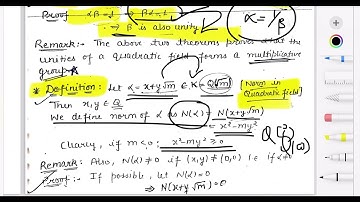 Proof αβ=1 ⇒ βα=1 α=1/β
∴ ⇒ β is also unity
Remark:- The above two theorems proves that the
unities of a quadratic field forms a multiplicative
group.
* Definition: Let α=x+y√m ∈ K=Q(√m) [Norm in
Then x,y ∈ Q Quadratic field]
We define norm of α as N(α)=N(x+y√m)
=x²-my²
Clearly, if m<0; x²-my²≥0
Remark: Also, N(α)≠0 if (x,y)≠(0,0) i.e if α≠0
Proof:- If possible, let N(α)=0
⇒ N(x+y√m)=0